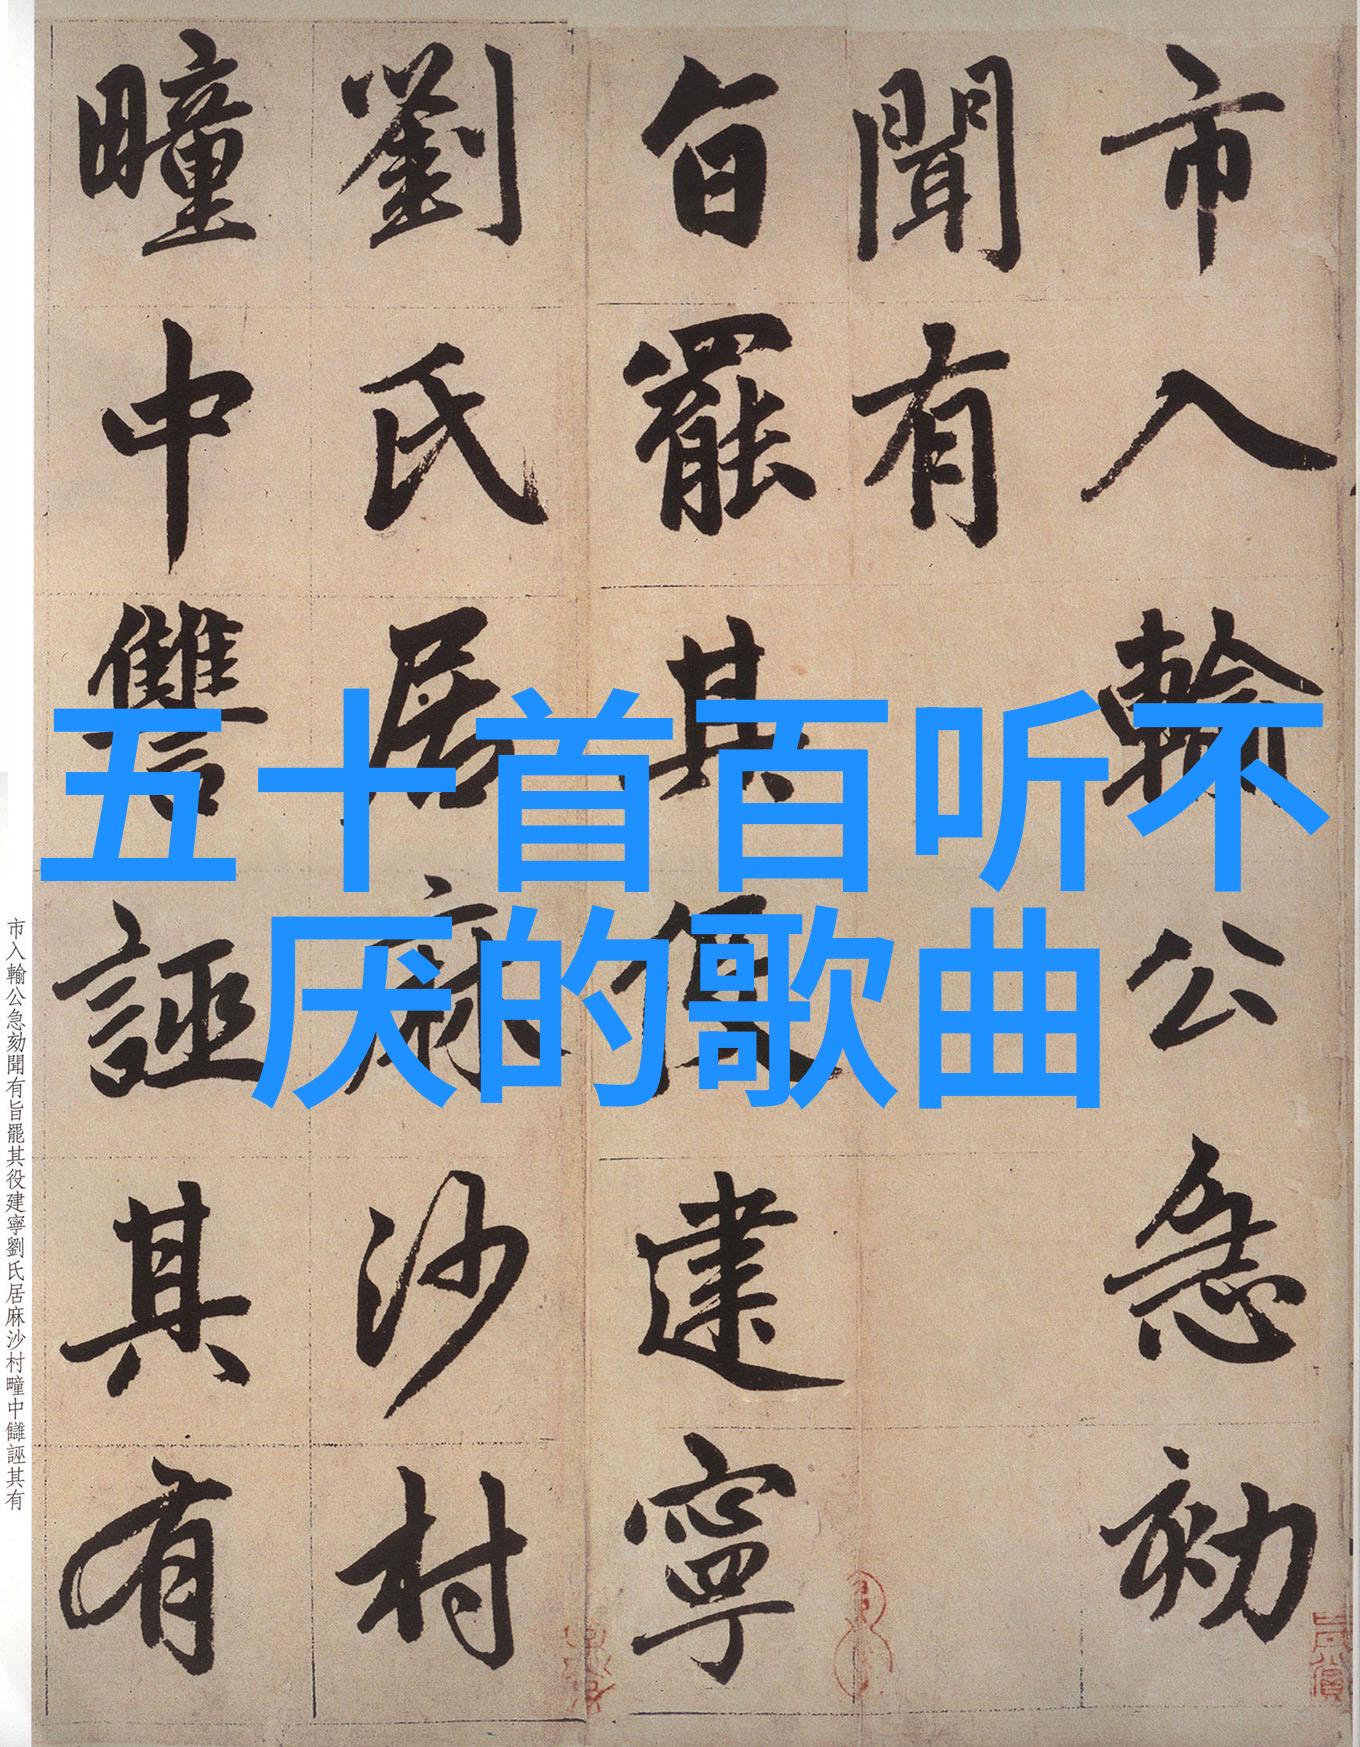 市入輸公急劾
聞有
旨罷其役建寧
劉氏居麻沙村
疃中讐誣其有
五十首百听不
厌的歌曲
市入輸公急劾聞有旨罷其役建寧劉氏居麻沙村疃中讎誣其有